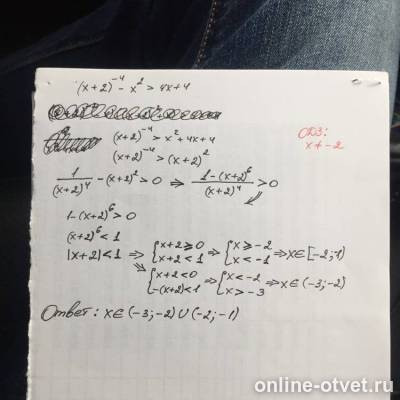 (x+2)⁻⁴ - x² > 4x+4
(x+2)⁻⁴ > x²+4x+4
ОДЗ:
x ≠ -2
(x+2)⁻⁴ > (x+2)²
1/(x+2)⁴ - (x+2)² > 0 ⇒ (1-(x+2)⁶)/(x+2)⁴ > 0
1-(x+2)⁶ > 0
(x+2)⁶ < 1
|x+2| < 1 ⇒ {x+2 ≥ 0 x+2 < 1 ⇒ {x ≥ -2 x < -1 ⇒ x ∈ [-2;-1)
⇒ {x+2 < 0 -(x+2) < 1 ⇒ {x < -2 x > -3 ⇒ x ∈ (-3;-2)
Ответ: x ∈ (-3;-2) ∪ (-2;-1)
online-otvet.ru